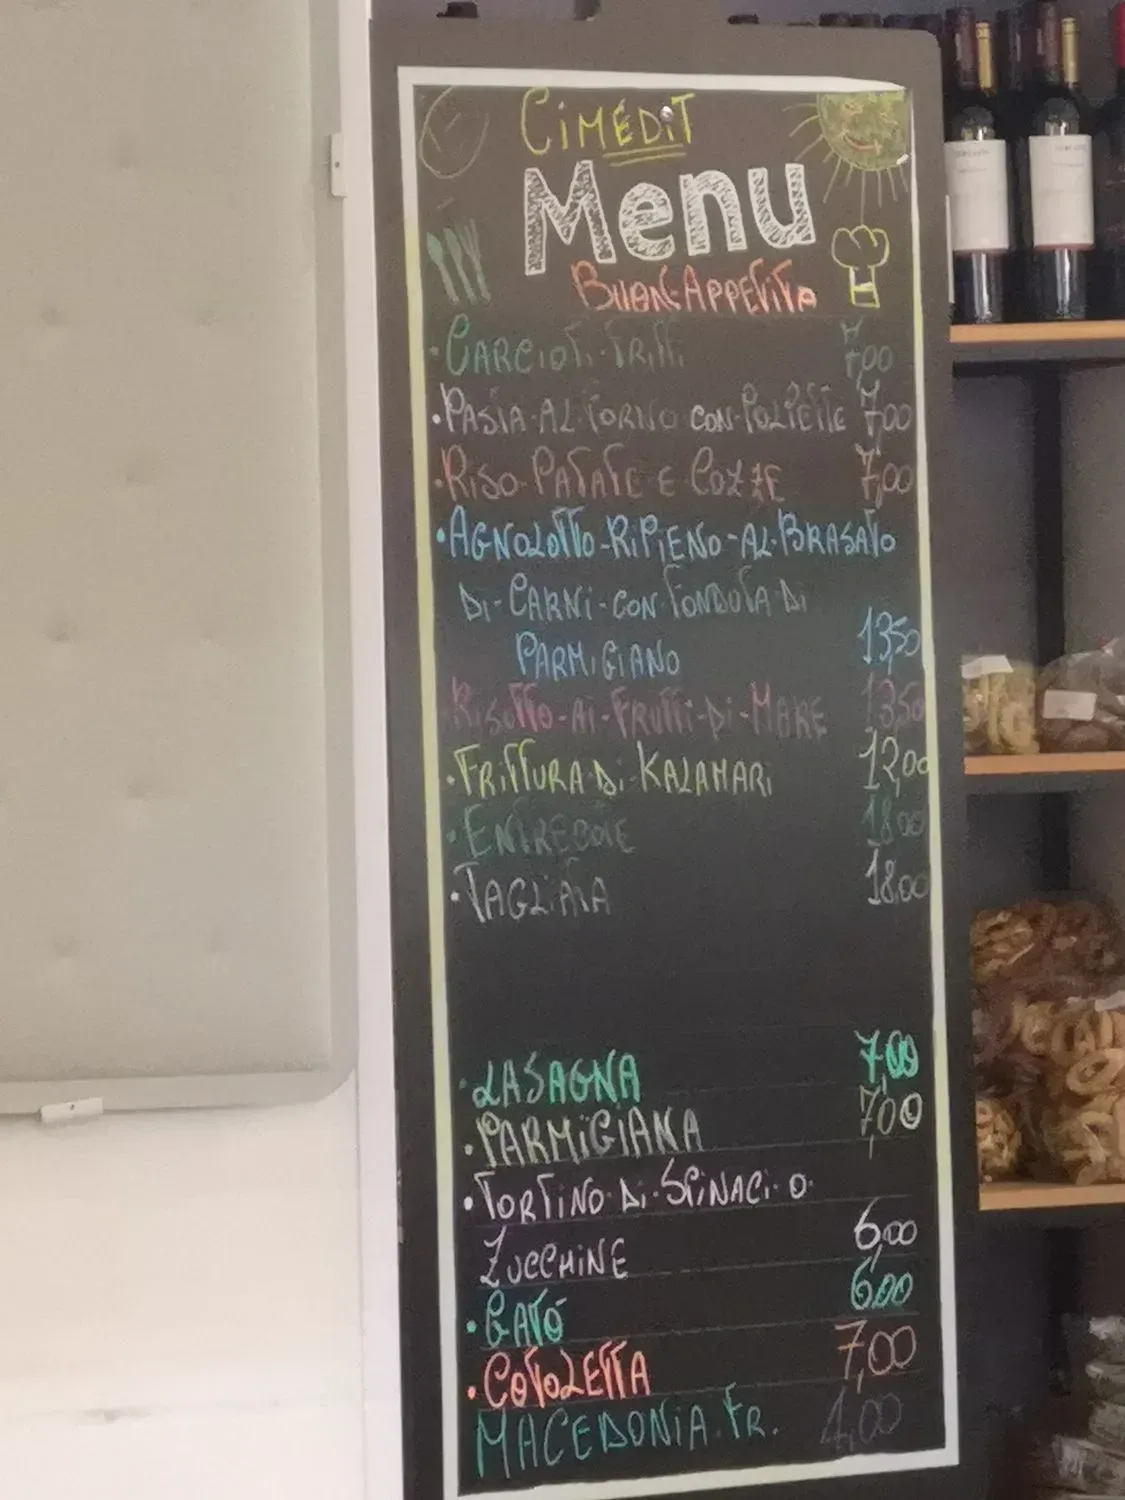 CIMEDIT
Menu
BUON-APPETITO
• CARCIOFI-FRITTI 7,00
• PASTA-AL-FORNO CON-POLPETTE 7,00
• RISO-PATATE E COZZE 7,00
• AGNOLOTTO-RIPIENO-AL-BRASATO
DI-CARNI-CON-FONDUTA-DI
PARMIGIANO 13,50
RISOTTO-AI-FRUTTI-DI-MARE 13,50
• FRITTURA-DI-KALAMARI 12,00
• ENTRECOTE 18,00
• TAGLIATA 18,00
• LASAGNA 7,00
• PARMIGIANA 7,00
• TORTINO DI-SPINACI-O
ZUCCHINE 6,00
• GATÓ 6,00
• COTOLETTA 7,00
MACEDONIA.FR. 4,00